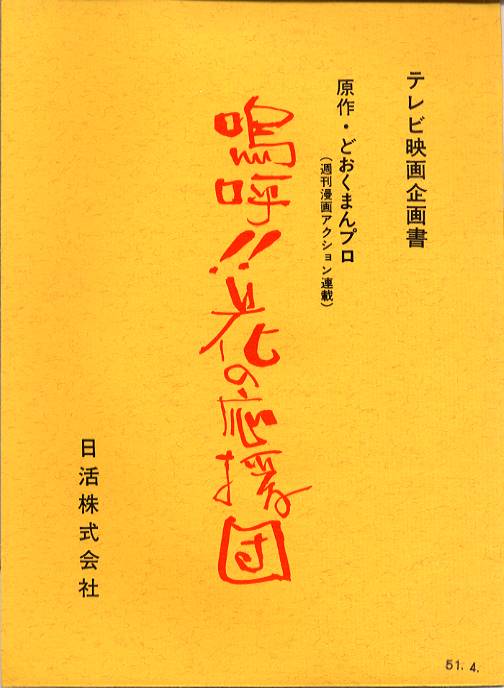 テレビ映画企画書
原作・どおくまんプロ
(週刊漫画アクション連載)
嗚呼!!花の応援団
日活株式会社
51.4.